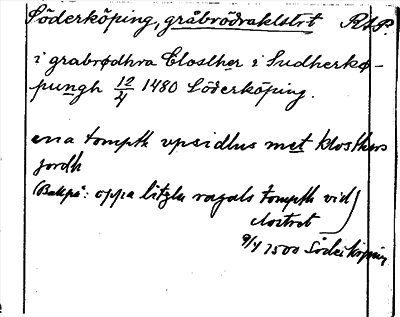 Söderköping, gråbrödraklstrt RAP.
i grabrødhra Closther i Sudherkø-
pungh 12/4 1480 Söderköping.
ena tompth vpsidhus met klosthers
jordh
(Bakpå: oppa litzla ragals tompth vid
clostret)
9/4 1500 Söderköping